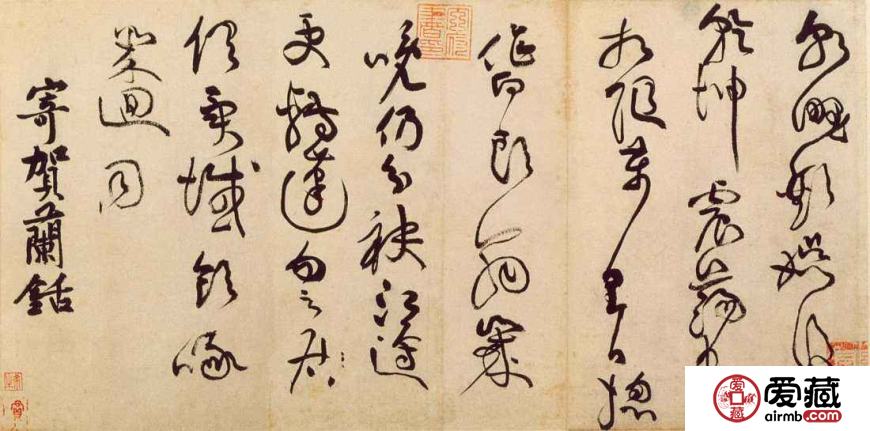 朝野歡娛後
乾坤震蕩中
相隨萬里日總
作白頭翁歲
晚仍分袂江邊
更轉蓬勿云君
俱異域飲啄
幾迴同
寄賀蘭銛
爱藏
airmb.com